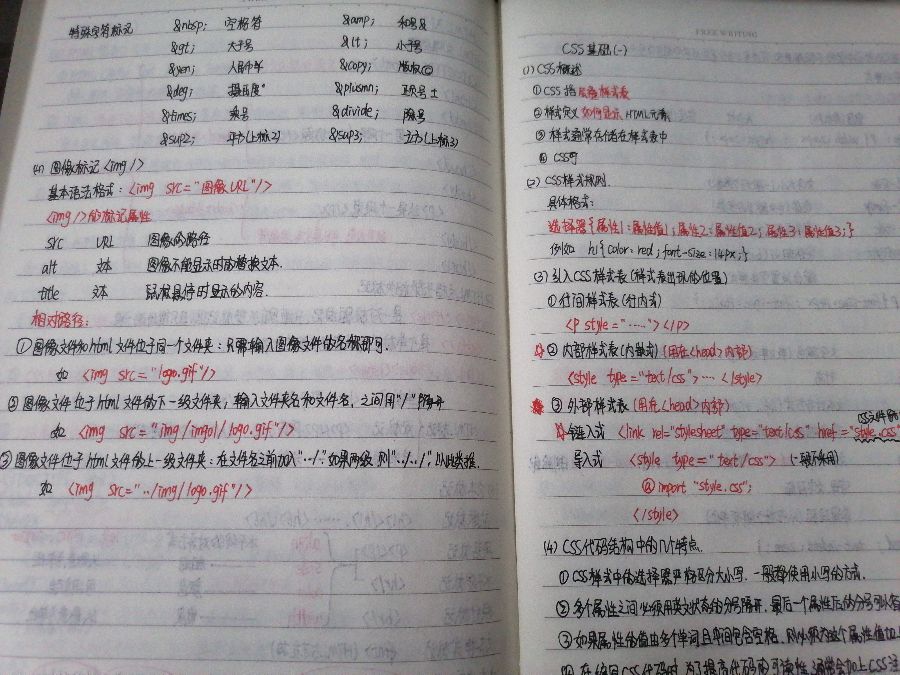 特殊字符标记 &nbsp; 空格符 &amp; 和号&
&gt; 大于号 &lt; 小于号
&yen; 人民币¥ &copy; 版权©
&deg; 摄氏度° &plusmn; 正负号±
&times; 乘号 &divide; 除号
&sup2; 平方(上标2) &sup3; 立方(上标3)
(4) 图像标记<img/>
基本语法格式：<img src="图像URL"/>
<img/>的标记属性
src URL 图像的路径
alt 文本 图像不能显示时的替换文本.
title 文本 鼠标悬停时显示的内容.
相对路径：
①图像文件和html文件位于同一个文件夹：只需输入图像文件的名称即可.
如 <img src="logo.gif"/>
②图像文件位于html文件的下一级文件夹；输入文件夹名和文件名，之间用"/"隔开
如 <img src="img/img01/logo.gif"/>
③图像文件位于html文件的上一级文件夹：在文件名之前加入"../",如果两级,则"../../",以此类推.
如 <img src="../img/logo.gif"/>
FREE WRITING
CSS基础(一)
(1) CSS概述
①CSS指层叠样式表
②样式定义如何显示HTML元素
③样式通常存储在样式表中
④ CSS可
(2) CSS样式规则.
具体格式：
选择器{属性1:属性值1;属性2:属性值2;属性3:属性值3;}
例如 h1{color:red;font-size:14px;}
(3)引入CSS样式表(样式表出现的位置)
①行间样式表(行内式)
<P style="……"></P>
②内部样式表(内嵌式)(用在<head>内部)
<style type="text/css">……</style>
③外部样式表(用在<head>内部)
链入式 <link rel="stylesheet" type="text/css" href="style.css"
CSS文件的
导入式 <style type="text/css"> (一般不采用)
@import "style.css";
</style>
(4) CSS代码结构中的几个特点.
①CSS样式中的选择器严格区分大小写.一般都使用小写的方式.
②多个属性之间必须用英文状态的分号隔开,最后一个属性后的分号可以省
③如果属性的值由多个单词且中间包含空格,则必须为这个属性值加上
④在编写CSS代码时,为了提高代码的可读性,通常会加上CSS注